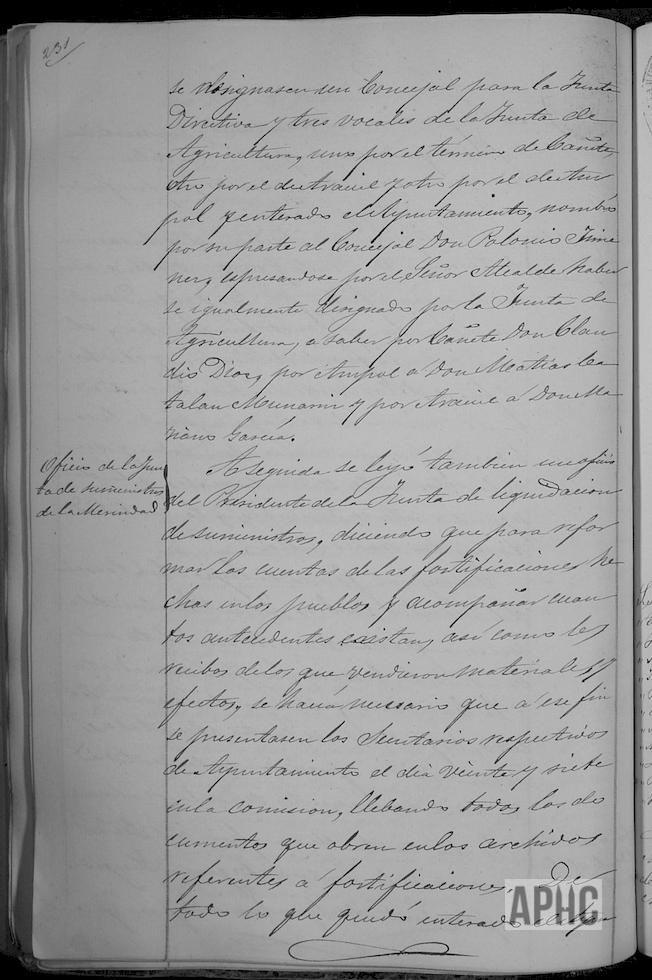 231
se designasen un Concejal para la Junta
Directiva y tres vocales de la Junta de
Agricultura, uno por el término de Cañete,
otro por el de Araiel y otro por el de Am
pol y enterado el Ayuntamiento, nombró
por su parte al Concejal Don Polonio Jime
nez, espresandose por el Señor Alcalde haber
se igualmente designado por la Junta de
Agricultura, a saber por Cañete Don Clau
dio Diaz, por Ampol a Don Matías Ca
talan Munarriz y por Araiel á Don Ma
riano García.
Oficio de la Jun
ta de suministros
de la Merindad
A seguida se leyó tambien un oficio
del Presidente de la Junta de liquidacion
de suministros, diciendo que para refor
mar las cuentas de las fortificaciones he
chas en los pueblos y acompañar cuan
tos antecedentes existan, así como los
recibos de los que vendieron materiales y
efectos, se hacía necesario que á ese fin
se presentasen los Secretarios respectivos
de Ayuntamiento el dia veinte y siete
en la comision, llebando todos los do
cumentos que obren en los archivos
referentes á fortificaciones. De
todo lo que quedó enterado el Ayun
APHC